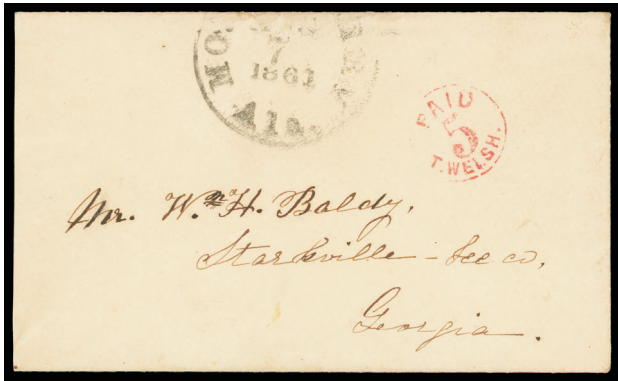 MO
7
1861
Ala.
PAID
5
T. WELSH.
Mr. Wm. H. Baldy,
Starkville - Lee co,
Georgia.